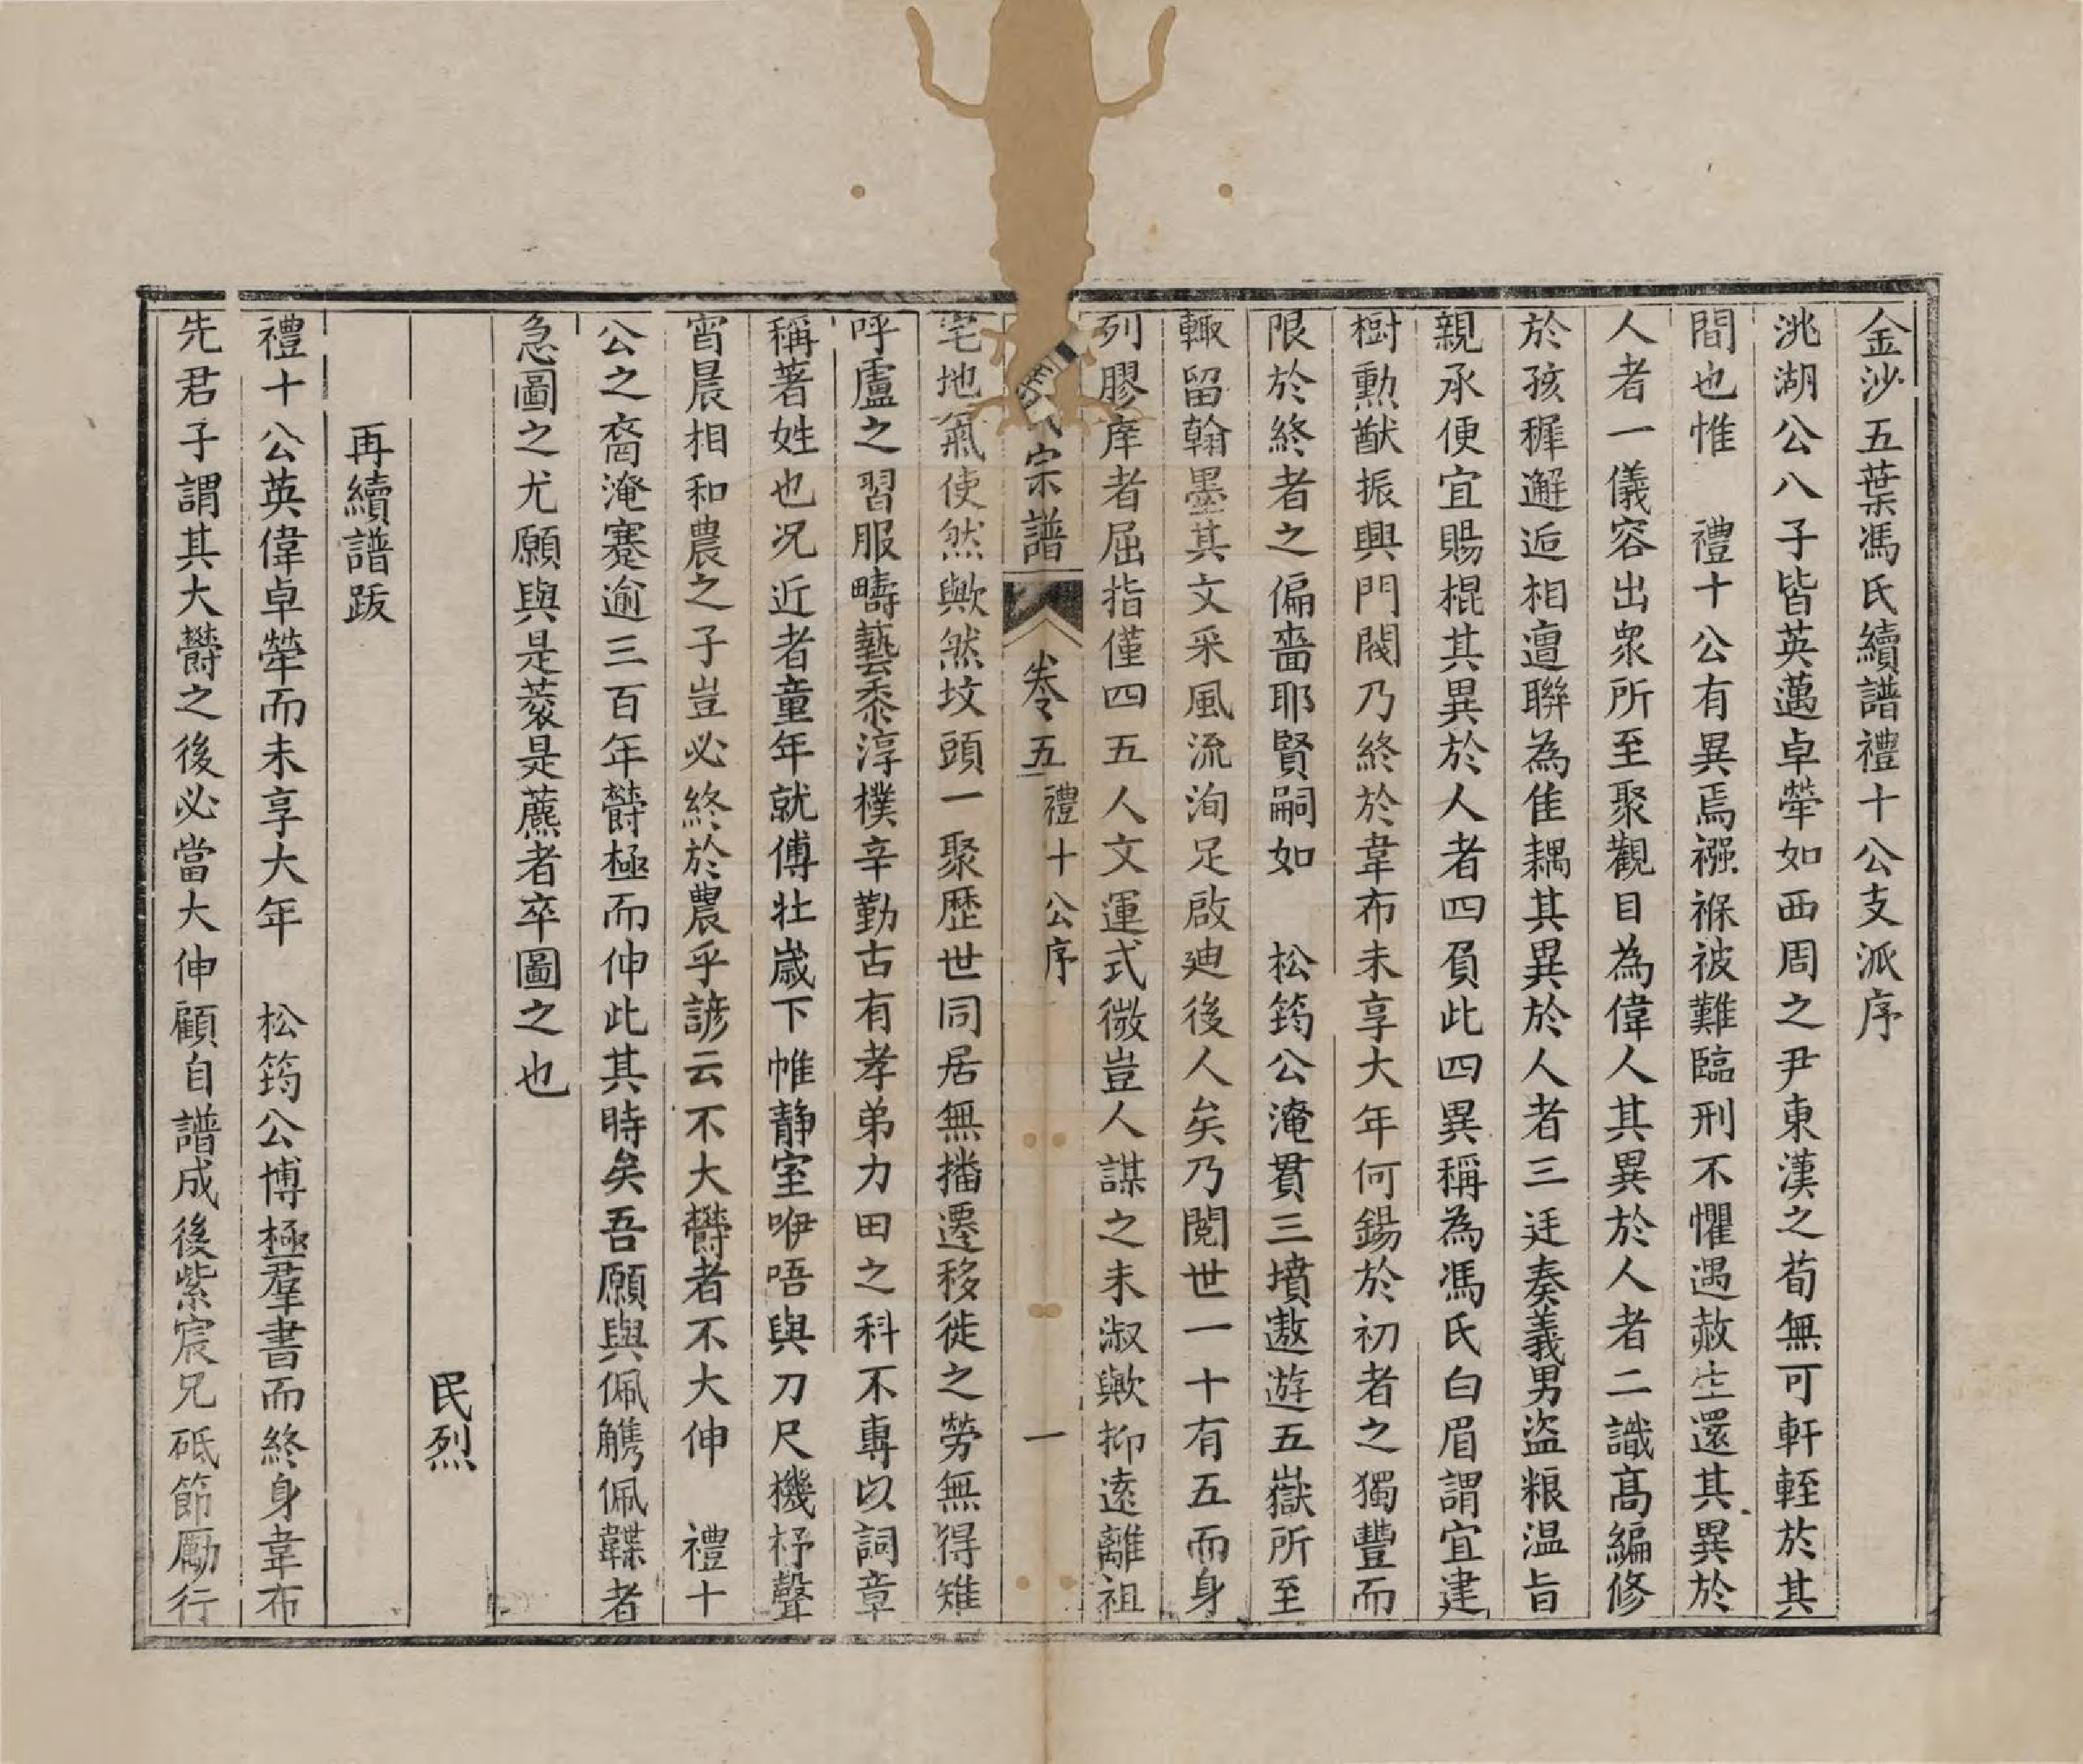 金沙五葉馮氏續譜禮十公支派序
洮湖公八子皆英邁卓犖如西周之尹東漢之荀無可軒輊於其
間也惟 禮十公有異焉襁褓被難臨刑不懼遇赦生還其異於
人者一儀容出衆所至聚觀目為偉人其異於人者二識高編修
於孩穉邂逅相遭聯為佳耦其異於人者三廷奏義男盜粮温旨
親承便宜賜棍其異於人者四負此四異稱為馮氏白眉謂宜建
樹勳猷振興門閥乃終於韋布未享大年何錫於初者之獨豐而
限於終者之偏嗇耶賢嗣如 松筠公淹貫三墳遨遊五嶽所至
輙留翰墨其文采風流洵足啟廸後人矣乃閱世一十有五而身
列膠庠者屈指僅四五人文運式微豈人謀之未淑歟抑遠離祖
宗譜 卷五 禮十公序 一
宅地氣使然歟然坟頭一聚歷世同居無播遷移徙之勞無得雉
呼盧之習服疇藝黍淳樸辛勤古有孝弟力田之科不專以詞章
稱著姓也况近者童年就傅壯歲下帷静室咿唔與刀尺機杼聲
宵晨相和農之子豈必終於農乎諺云不大欝者不大伸 禮十
公之裔淹蹇逾三百年欝極而伸此其時矣吾願與佩觹佩韘者
急圖之尤願與是蓘是藨者卒圖之也
民烈
再續譜跋
禮十公英偉卓犖而未享大年 松筠公博極羣書而終身韋布
先君子謂其大欝之後必當大伸顧自譜成後紫宸兄砥節勵行